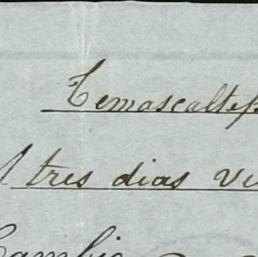 Temascaltep
A tres dias vi
Cambio